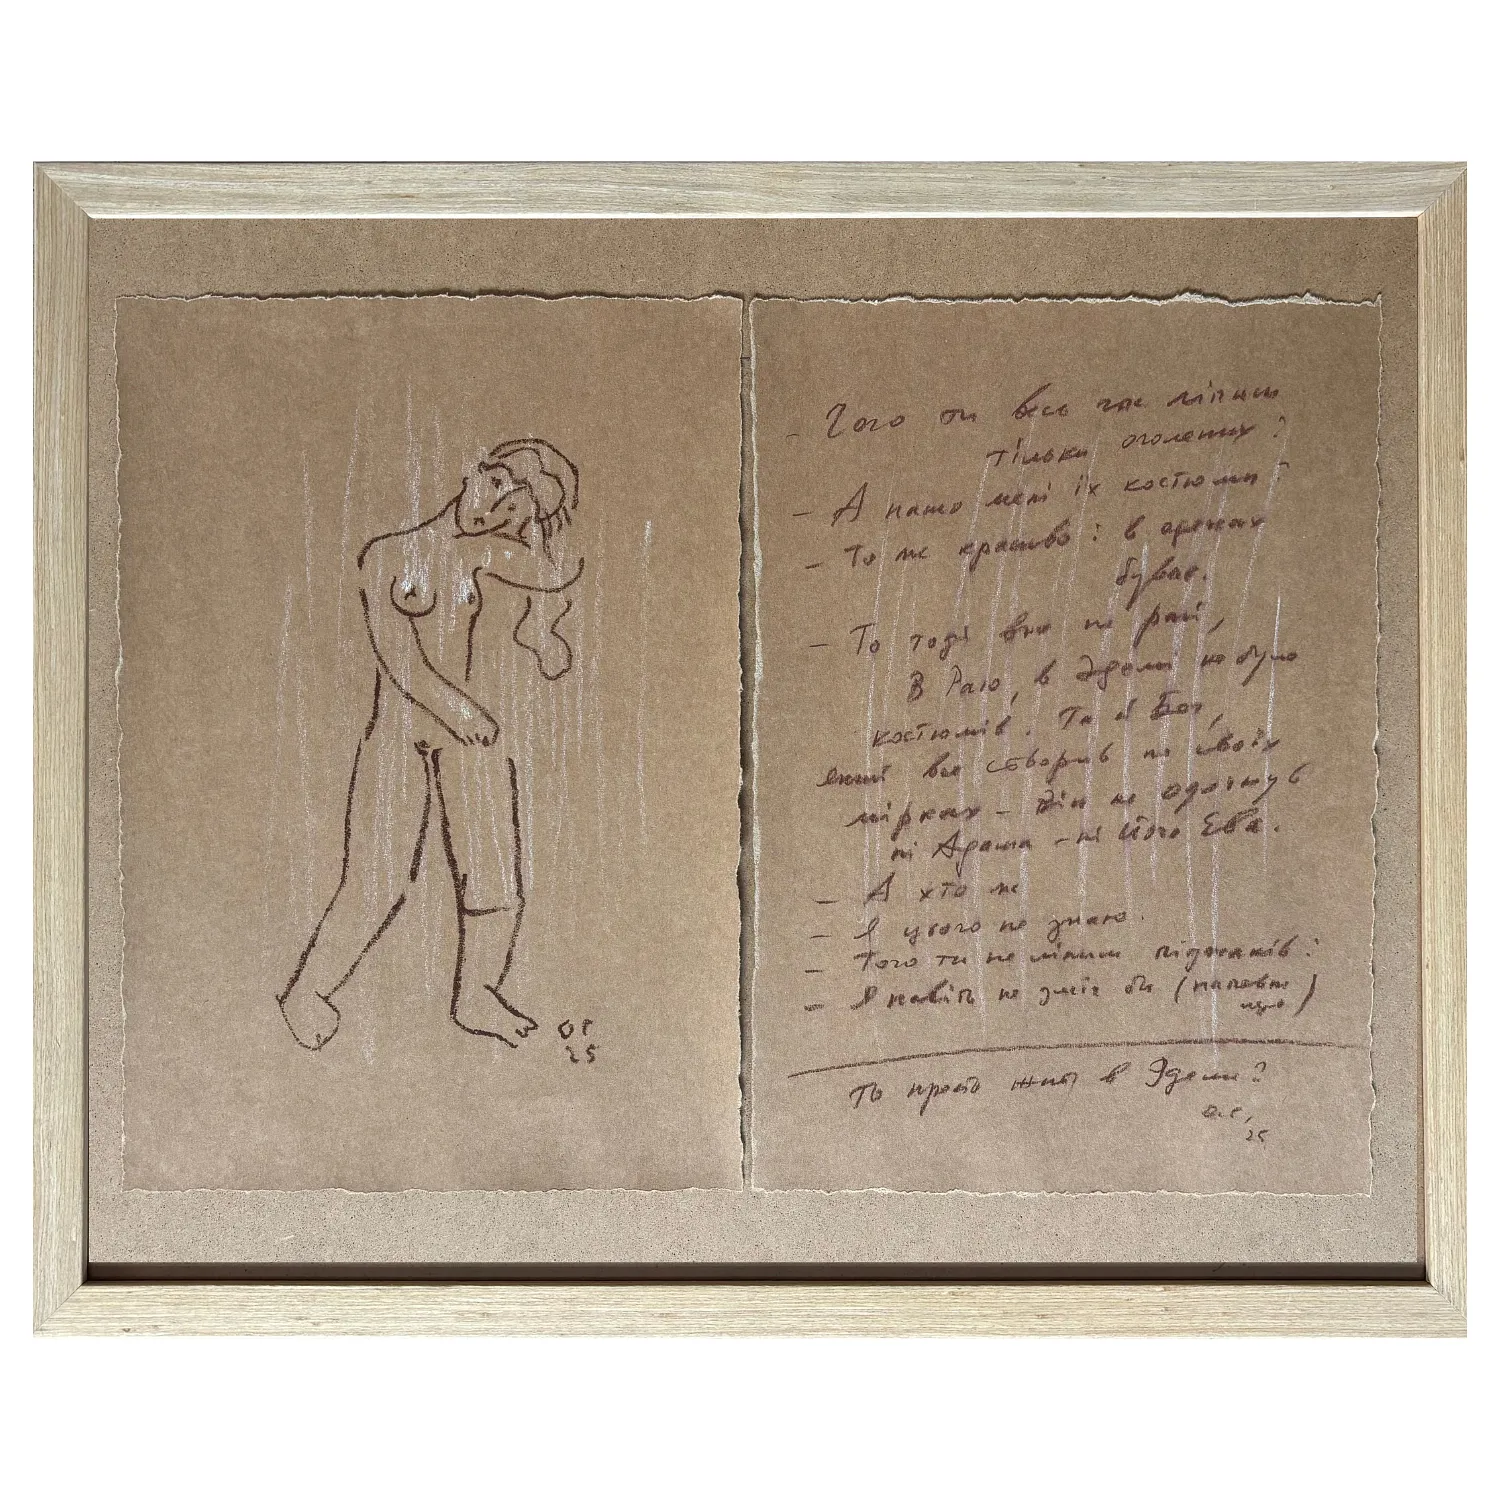 О Р
25
- Чого ти весь час ліпиш
тільки оголених?
- А нашо мені їх костюми?
- То ж красиво і в
буває.
- То тоді вже не рай,
В Раю, в Эдемі не було
костюмів. Та й Бог,
який все створив по своїх
мірках – Він не одягнув
ні Адама – ні Його Єва.
- А хто ж
- Я цього не знаю.
- Того ти не ліпиш піджаків?
- Я навіть не зміг би (напевне
що)
Ти просто жив в Эдемі?
О.Р,
25